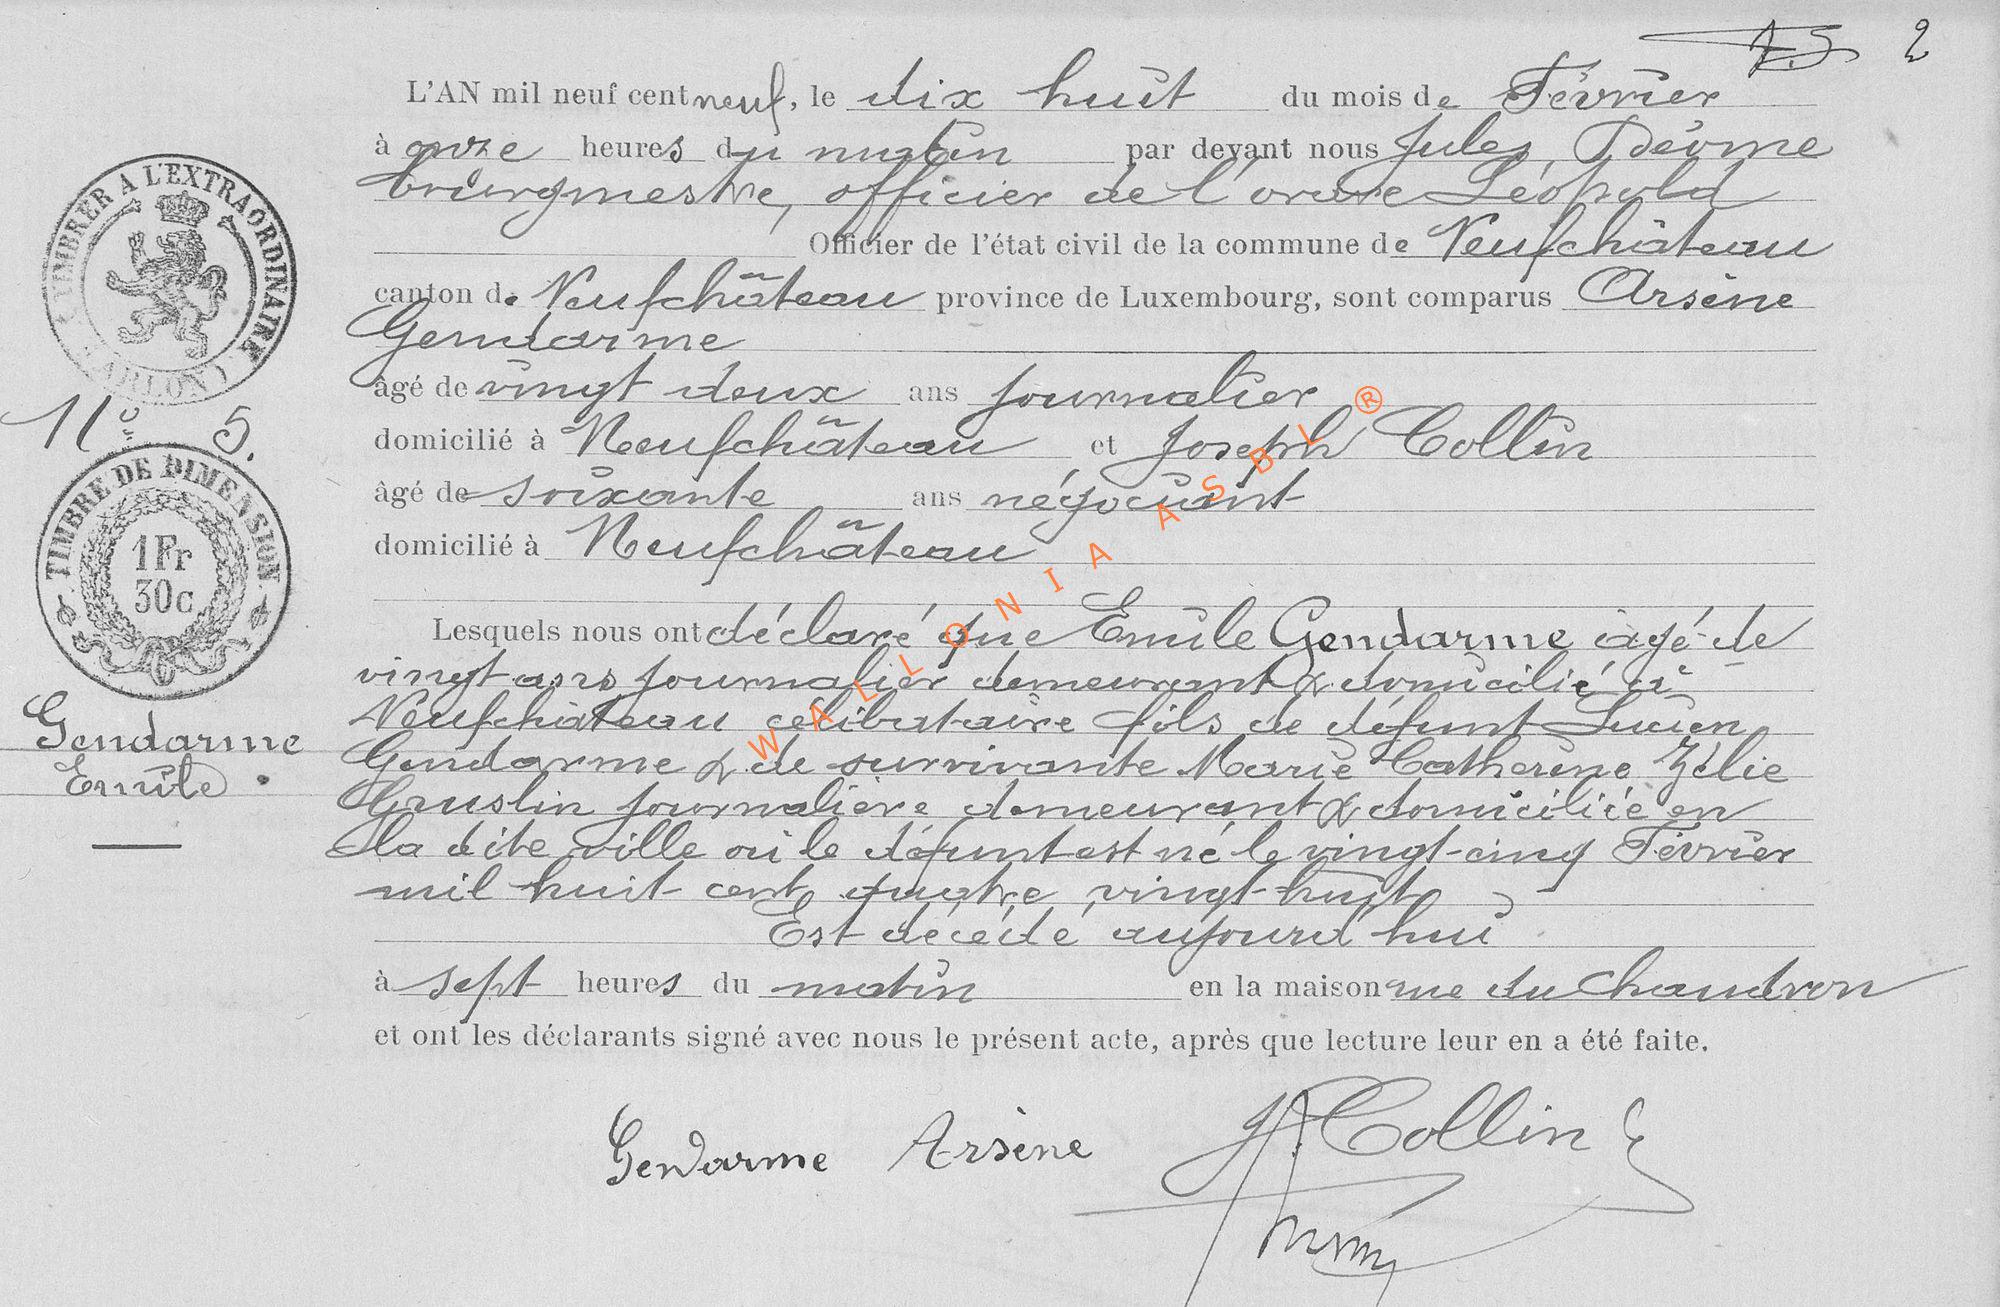 F.S 2
L'AN mil neuf cent neuf, le dix huit du mois de Février
à onze heures du matin par devant nous Jules Dérome
bourgmestre, officier de l'ordre Léopold
Officier de l'état civil de la commune de Neufchâteau
canton de Neufchâteau province de Luxembourg, sont comparus Arsène
Gendarme
âgé de vingt deux ans journalier
domicilié à Neufchâteau et Joseph Collin
âgé de soixante ans négociant
domicilié à Neufchâteau
Lesquels nous ont déclaré que Emile Gendarme âgé de
vingt ans journalier demeurant & domicilié à
Neufchâteau célibataire fils de défunt Lucien
Gendarme & de survivante Marie Catherine Zélie
Gruslin journalière demeurant & domiciliée en
la dite ville où le défunt est né le vingt-cinq Février
mil huit cent quatre vingt-huit
Est décédé aujourd'hui
à sept heures du matin en la maison rue du Chaudron
et ont les déclarants signé avec nous le présent acte, après que lecture leur en a été faite.
Gendarme Arsène J. Collin
TIMBRER A L'EXTRAORDINAIRE
ARLON
N° 5.
TIMBRE DE DIMENSION
1Fr
30c
Gendarme
Emile
WALLONIA ASBL ®